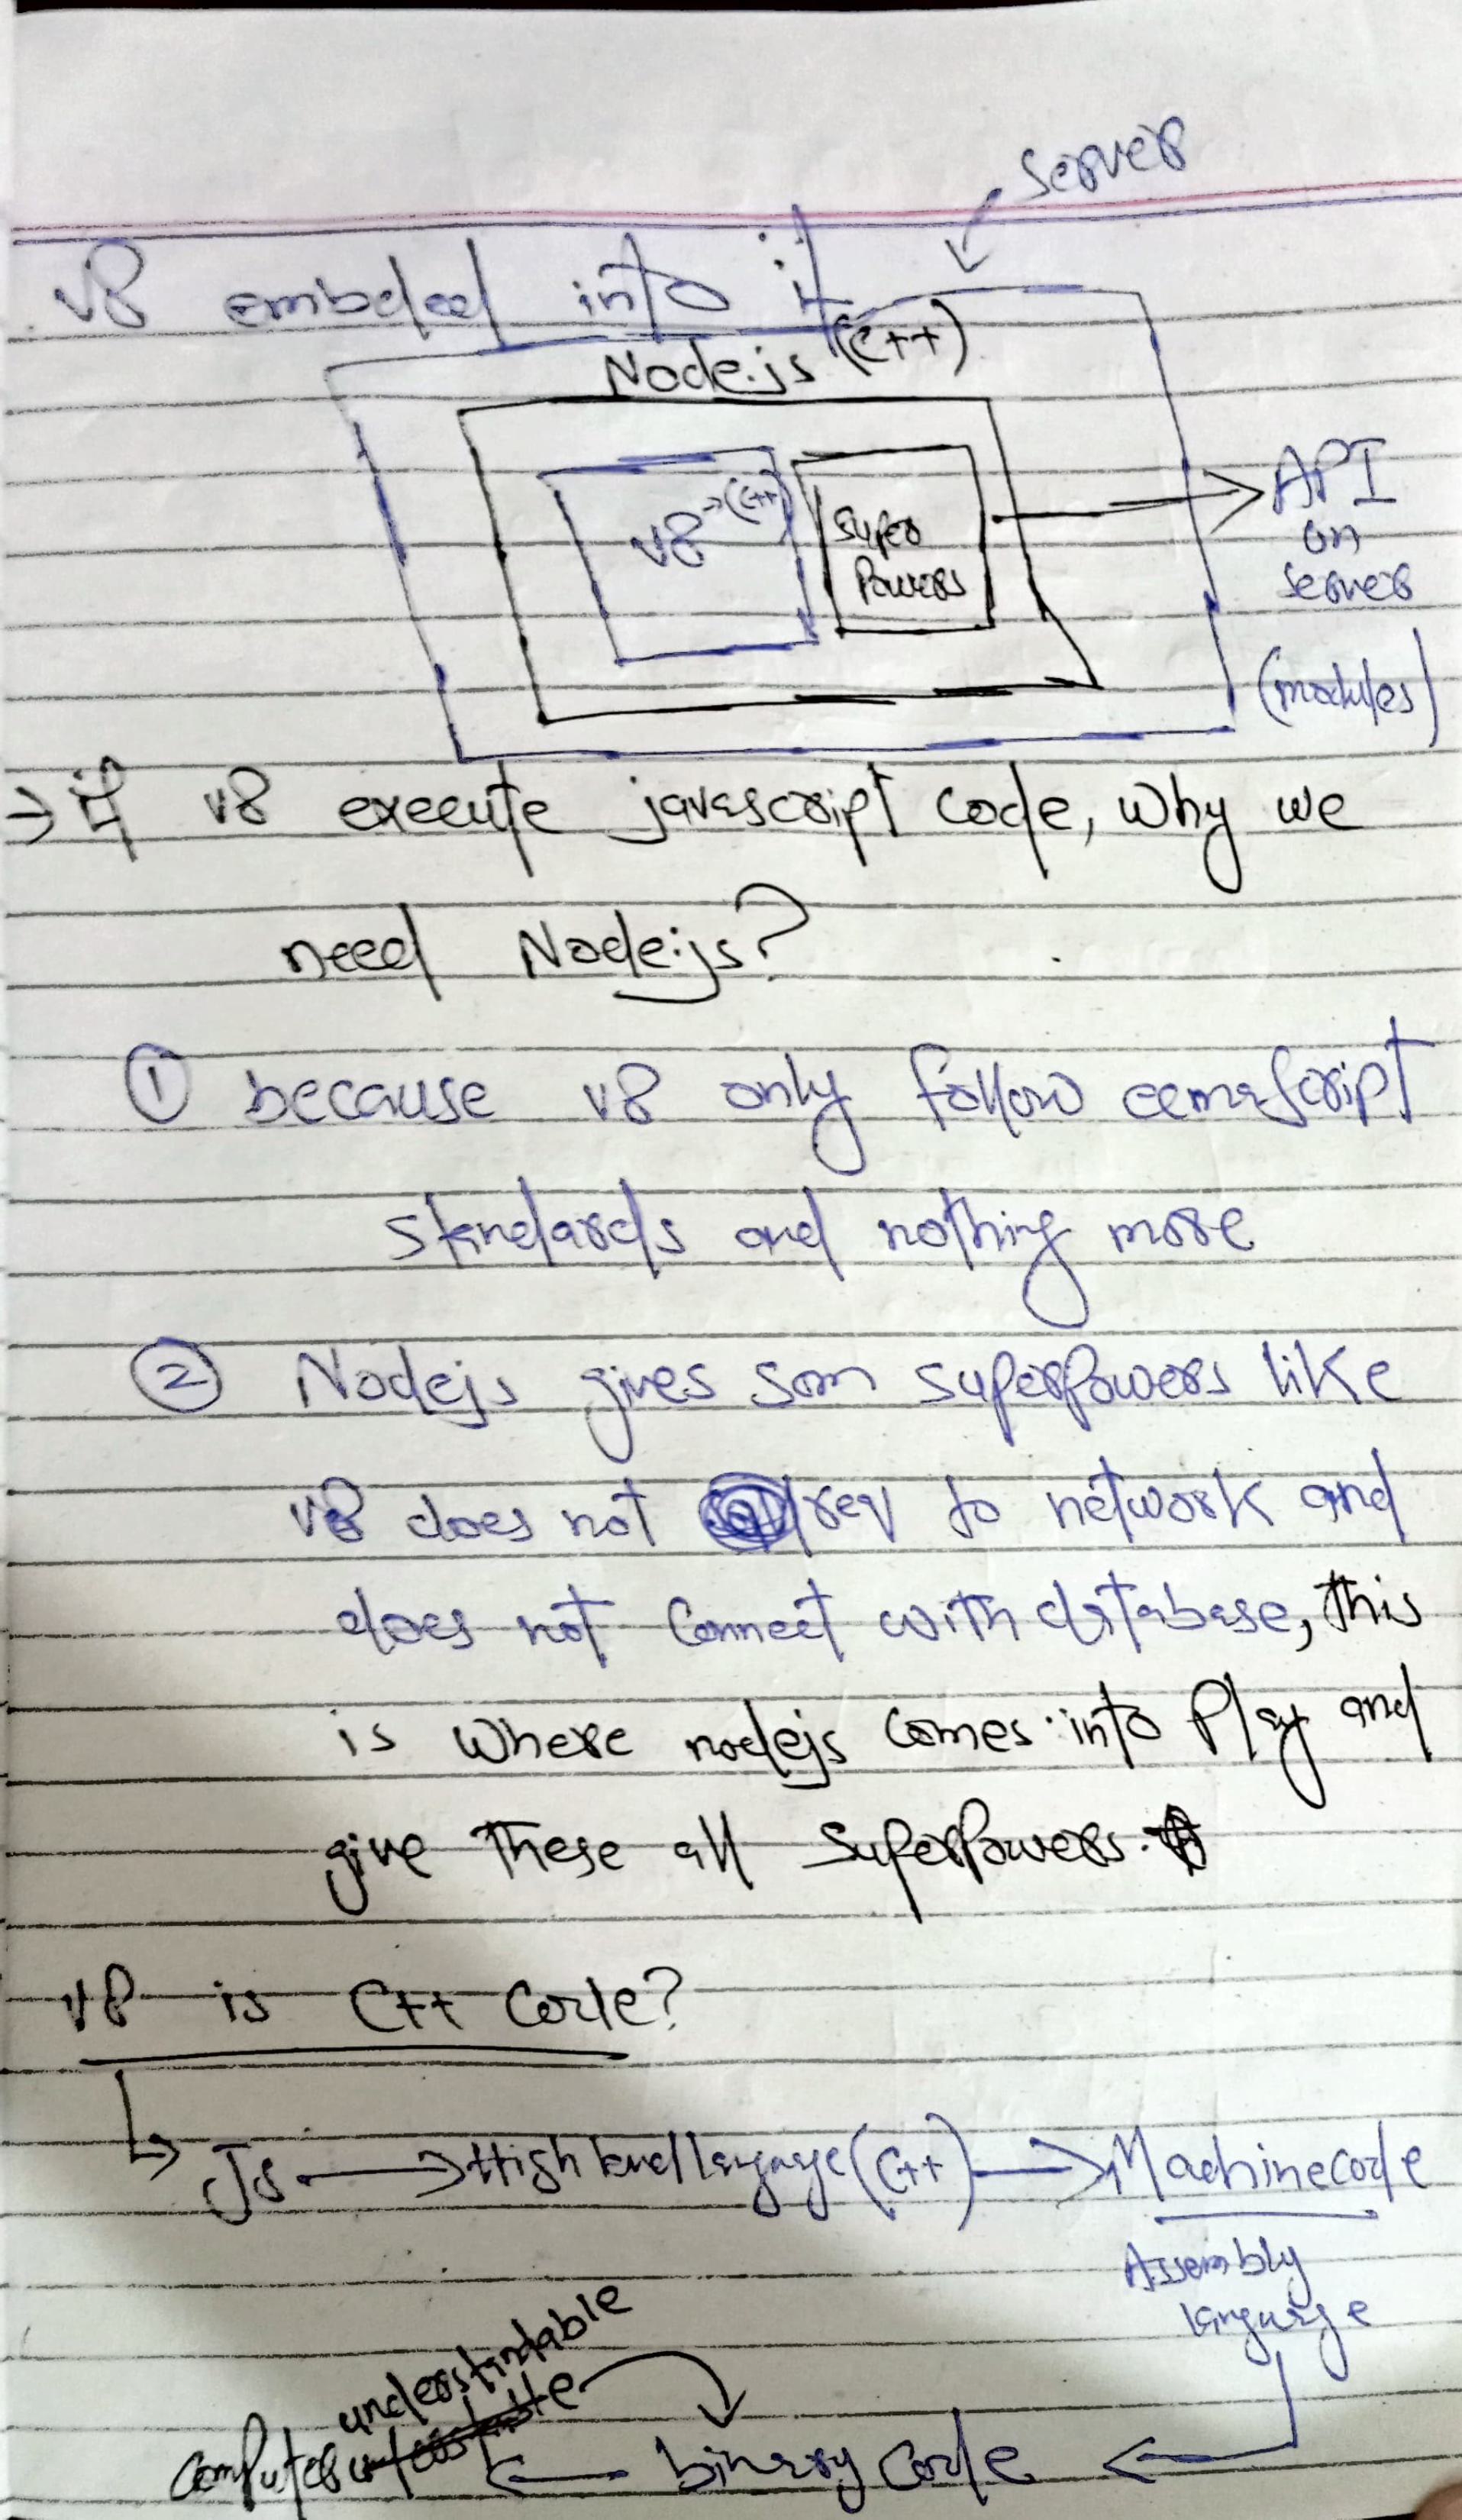 server
v8 embded into it
Node.js (C++)
v8 → (C++)
Super
Powers
API
on
server
(modules)
→ if v8 execute javascript code, why we
need Node.js?
① because v8 only follow ecmascript
standards and nothing more
② Nodejs gives som superpowers like
v8 does not req to network and
does not connect with database, this
is where nodejs comes into Play and
give these all SuperPowers.
v8 is C++ Code?
↳ JS → High level language (C++) → Machine code
Assembly
language
understandable
computer ← binary code ←